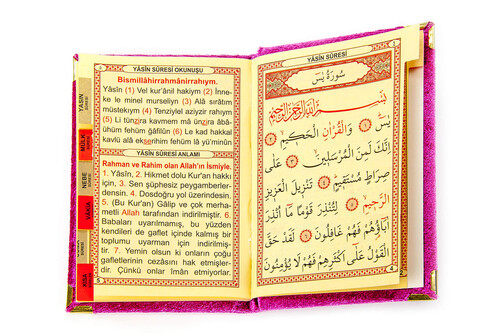 YÂSÎN SÛRESİ OKUNUŞU
Bismillâhirrahmânirrahym.
Yâsîn (1) Vel kur'ânil hakiym (2) İnne-
ke le minel murseliyn (3) Alâ sırâtım
müstekıym (4) Tenziylel aziyzir rahıym
(5) Li tünzira kavmem mâ ünzira âbâ-
ühüm fehüm ğâfilûn (6) Le kad hakkal
kavlü alâ ekserihim fehüm lâ yü'minûn
YÂSÎN SÛRESİ ANLAMI
Rahman ve Rahim olan Allah'ın ismiyle.
1. Yâsîn, 2. Hikmet dolu Kur'an hakkı
için, 3. Sen şüphesiz peygamberler-
densin. 4. Dosdoğru yol üzerindesin.
5. (Bu Kur'an) Gâlip ve çok merha-
metli Allah tarafından indirilmiştir. 6.
Babaları uyarılmamış, bu yüzden
kendileri de gaflet içinde kalmış bir
toplumu uyarman için indirilmiş-
tir. 7. Yemin olsun ki onların çoğu
gafletlerinin cezasını hak etmişler-
dir. Çünkü onlar îmân etmiyorlar.
YASİN
SÛRESİ
MÜLK
SÛRESİ
NEBE
SÛRESİ
VAKIA
SÛRESİ
KISA
YÂSÎN SÛRESİ
سُورَةُ يٰسٓ
بِسْمِ اللهِ الرَّحْمٰنِ الرَّحِيمِ
يٰسٓ ﴿١﴾ وَالْقُرْاٰنِ الْحَكِيمِ ﴿٢﴾
اِنَّكَ لَمِنَ الْمُرْسَلِينَ ﴿٣﴾ عَلٰى
صِرَاطٍ مُسْتَقِيمٍ ﴿٤﴾ تَنْزِيلَ الْعَزِيزِ
الرَّحِيمِ ﴿٥﴾ لِتُنْذِرَ قَوْمًا مَٓا اُنْذِرَ
اٰبَٓاؤُ۬هُمْ فَهُمْ غَافِلُونَ ﴿٦﴾ لَقَدْ حَقَّ
الْقَوْلُ عَلٰٓى اَكْثَرِهِمْ فَهُمْ لَا يُؤْمِنُونَ
4